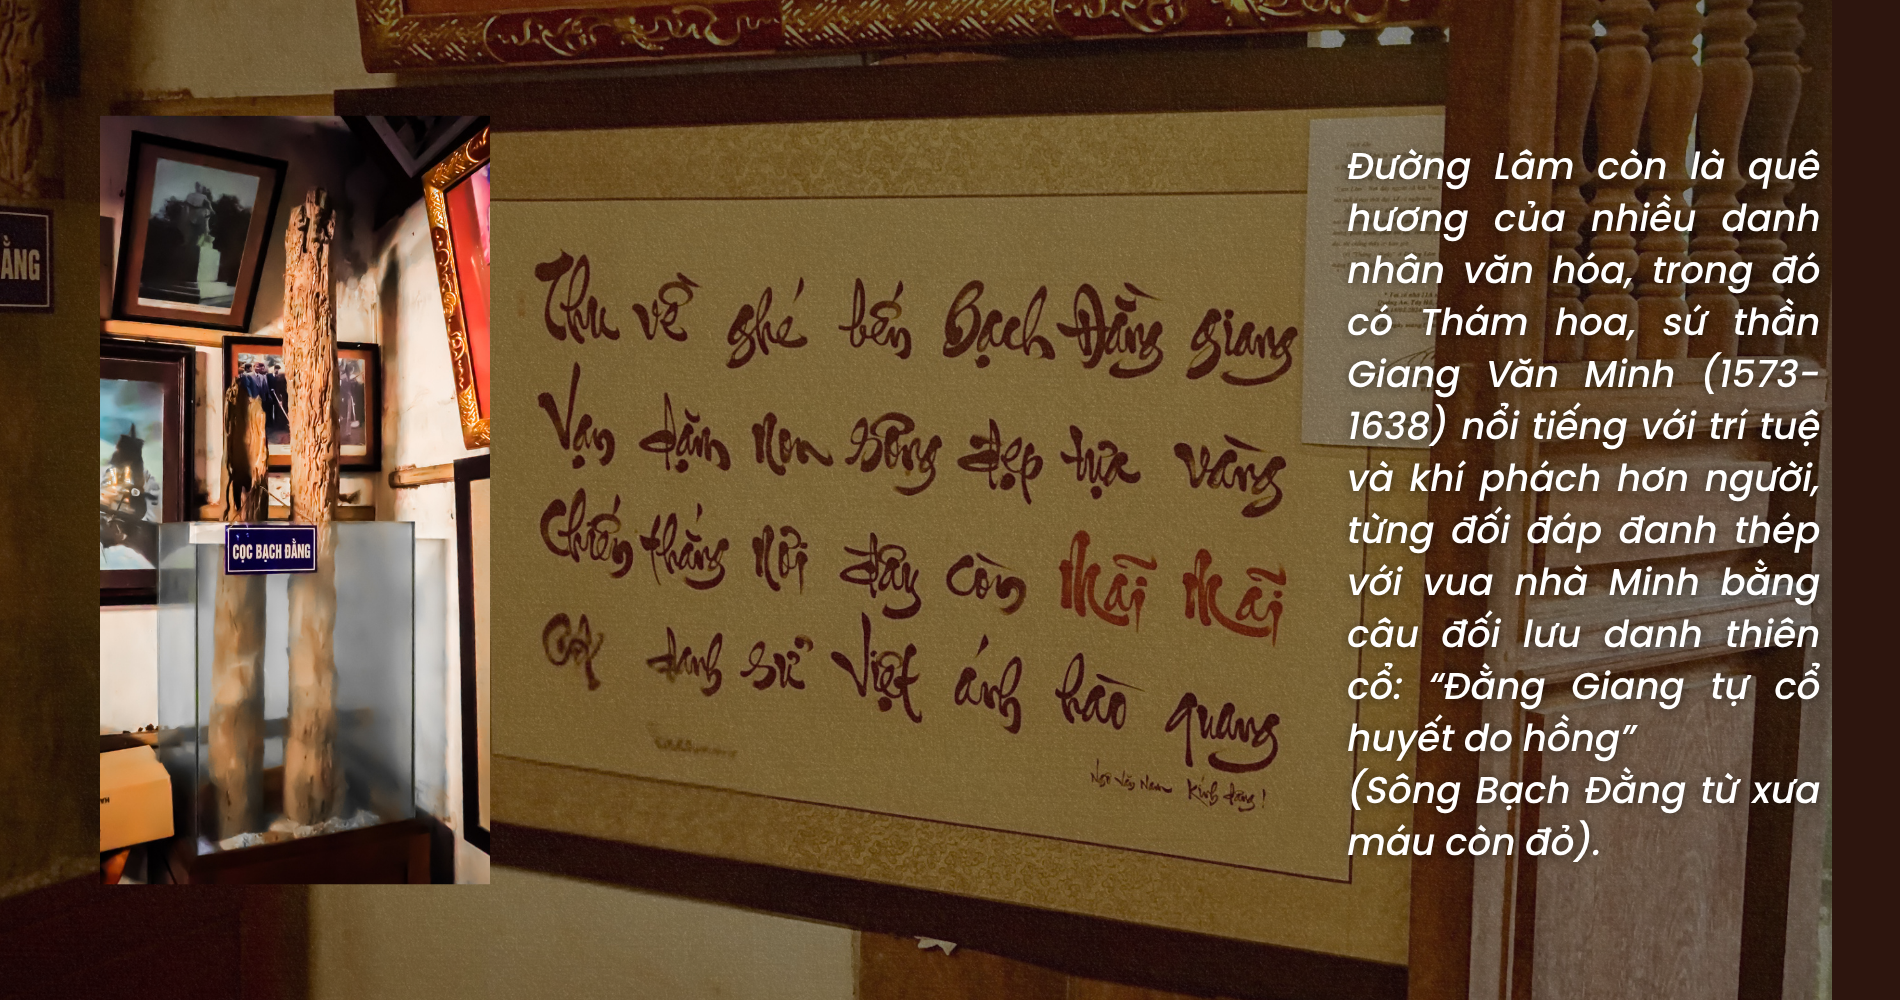 ẰNG
CỌC BẠCH ĐẰNG
Thu về ghé bến Bạch Đằng giang
Vạn dặm non sông đẹp tựa vàng
Chiến thắng nơi đây còn mãi mãi
danh sử Việt ánh hào quang
Ngô Văn Nam Kính tặng!
Đường Lâm còn là quê
hương của nhiều danh
nhân văn hóa, trong đó
có Thám hoa, sứ thần
Giang Văn Minh (1573-
1638) nổi tiếng với trí tuệ
và khí phách hơn người,
từng đối đáp đanh thép
với vua nhà Minh bằng
câu đối lưu danh thiên
cổ: “Đằng Giang tự cổ
huyết do hồng”
(Sông Bạch Đằng từ xưa
máu còn đỏ).